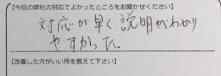 【今回の弊社の対応でよかったところをお聞かせください】
対応が早く説明がわかり
やすかった。
【改善した方がいい所を教えて下さい】